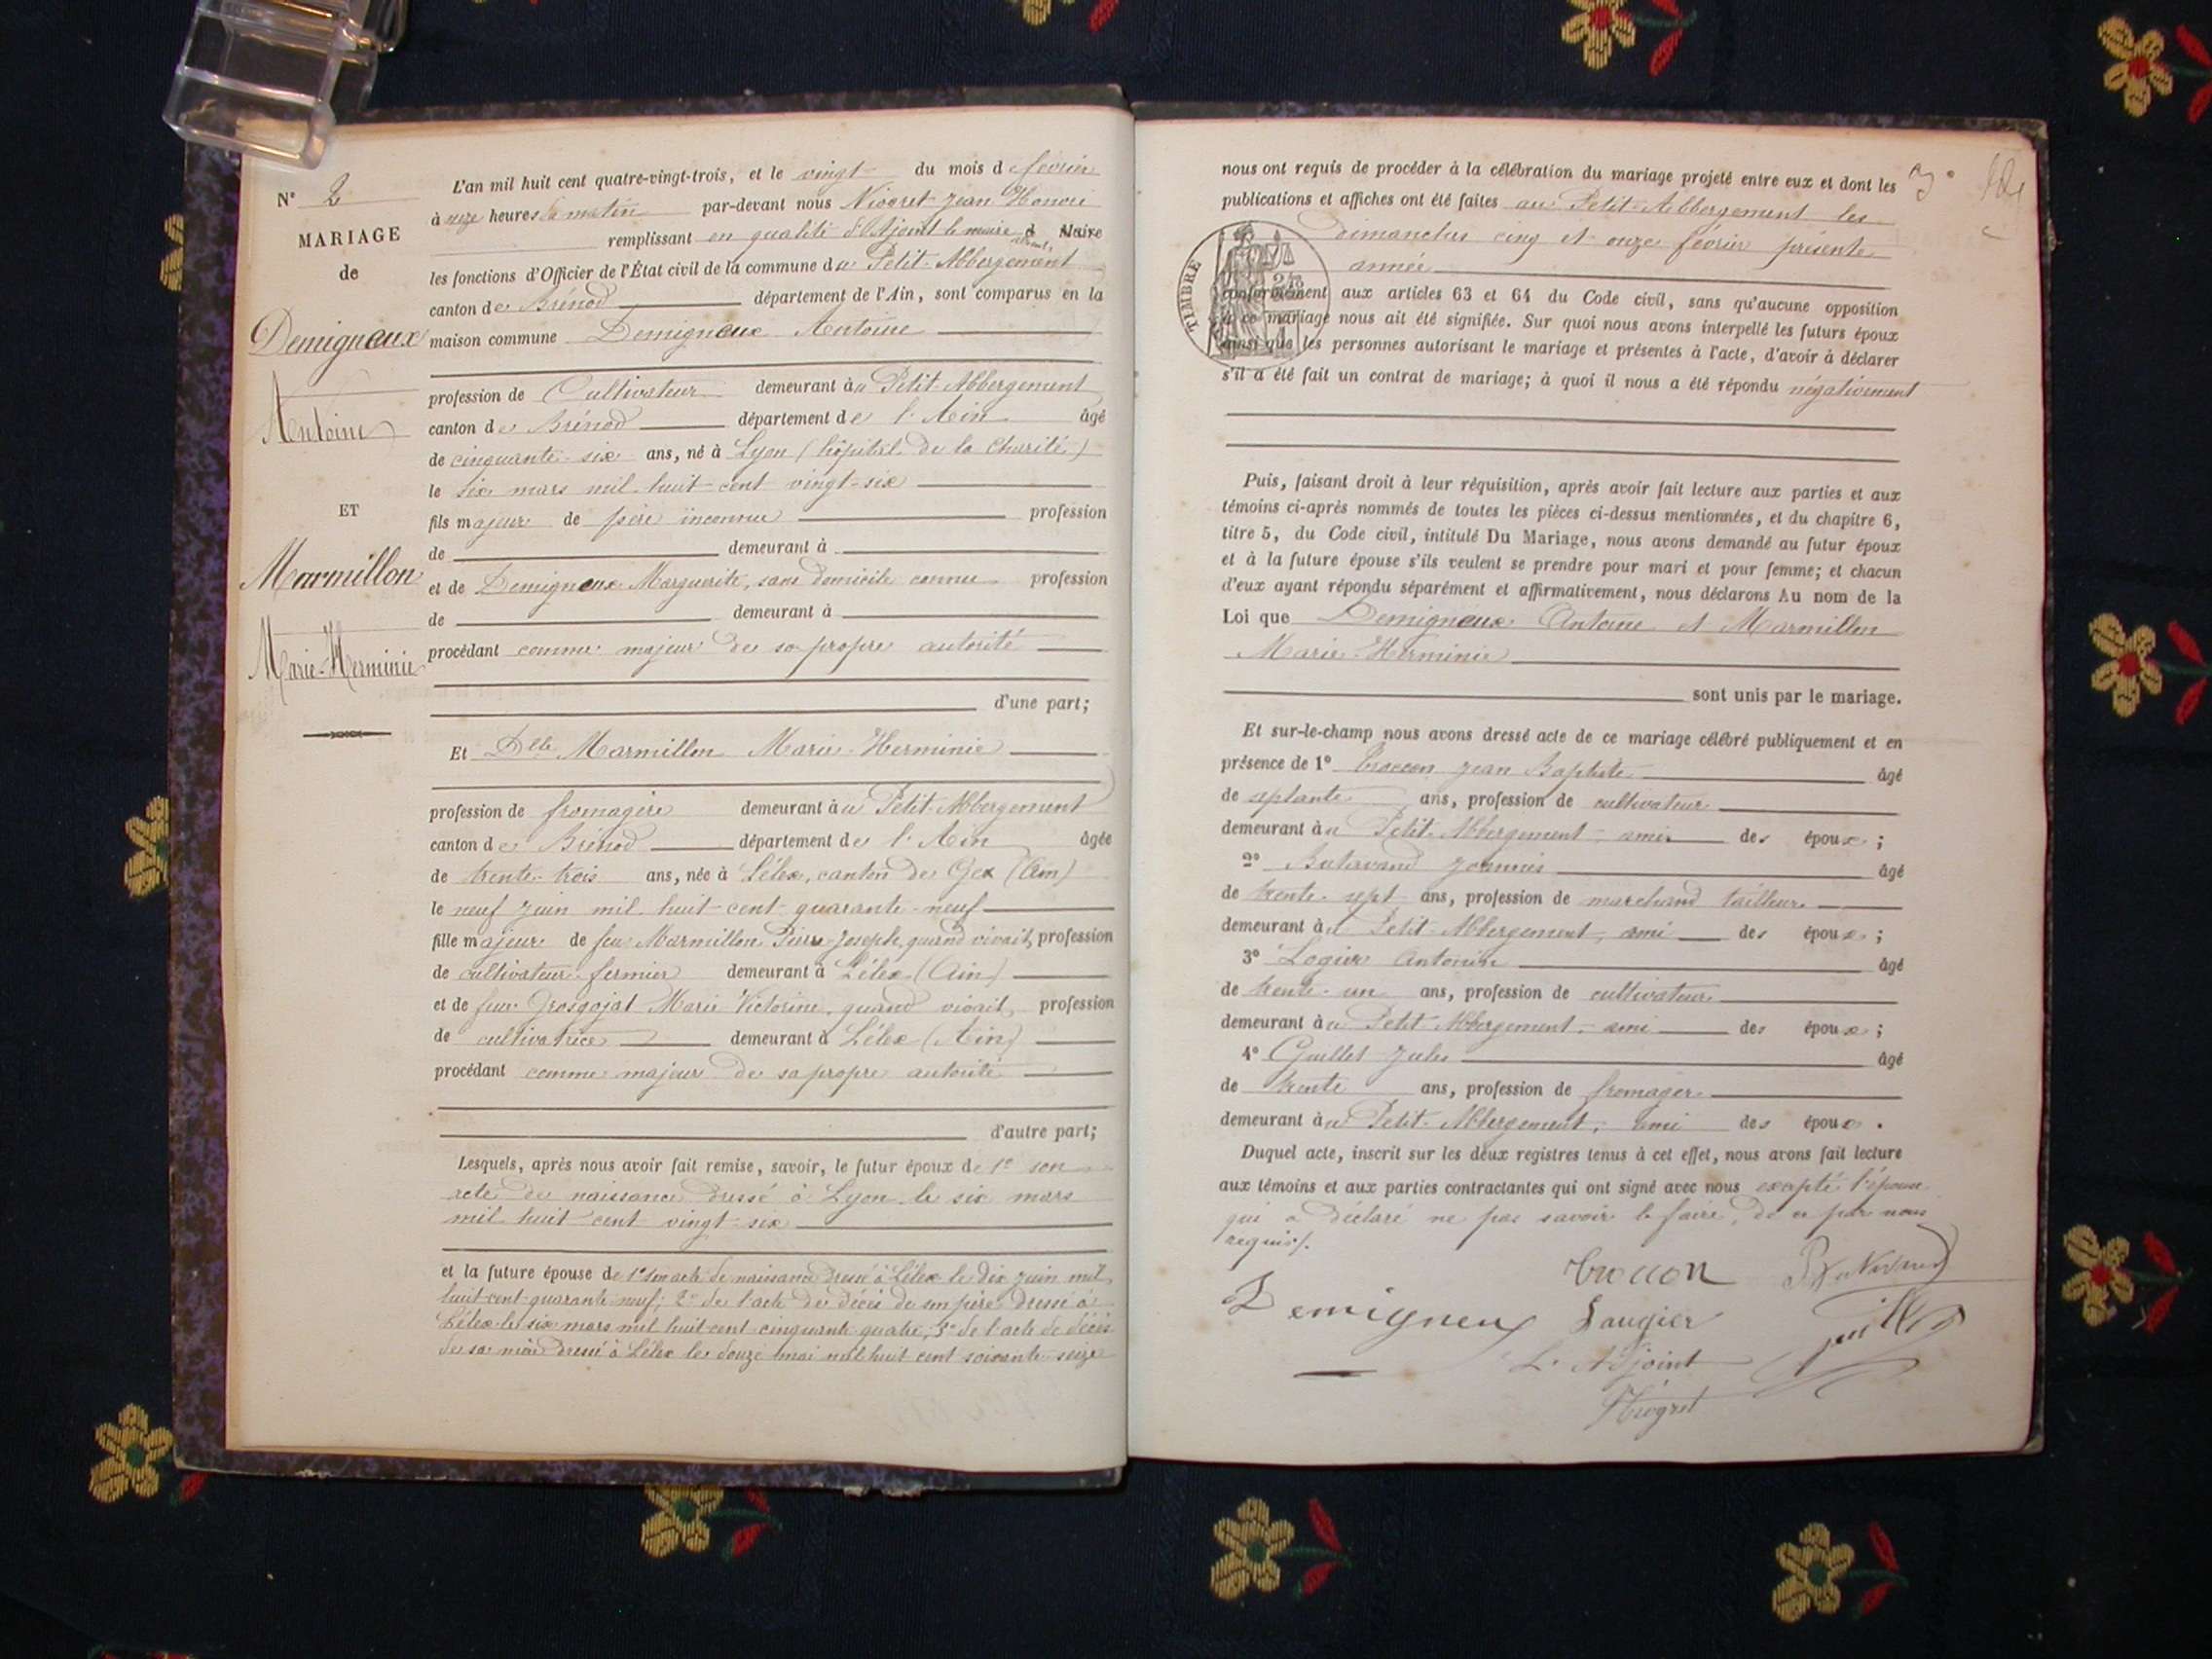 N° 2
MARIAGE
de
Demigneux
Antoine
ET
Marmillon
Marie-Herminie
L'an mil huit cent quatre-vingt-trois, et le vingt du mois de février
à onze heures du matin par-devant nous Niogret Jean Honoré
remplissant en qualité d'Adjoint le maire absent, d Maire
les fonctions d'Officier de l'État civil de la commune du Petit-Abbergement
canton de Brénod département de l'Ain, sont comparus en la
maison commune Demigneux Antoine
profession de Cultivateur demeurant àu Petit-Abbergement
canton de Brénod département de l'Ain âgé
de cinquante-six ans, né à Lyon (hôpital de la Charité)
le six mars mil huit-cent vingt-six
fils majeur de père inconnu profession
de demeurant à
et de Demigneux Marguerite, sans domicile connu profession
de demeurant à
procédant comme majeur de sa propre autorité
d'une part;
Et Dlle Marmillon Marie-Herminie
profession de fromagère demeurant àu Petit-Abbergement
canton de Brénod département de l'Ain âgée
de trente-trois ans, née à Lélex, canton de Gex (Ain)
le neuf juin mil huit-cent quarante-neuf
fille majeure de feu Marmillon Pierre-Joseph, quand vivait, profession
de cultivateur fermier demeurant à Lélex (Ain)
et de feue Grosgojat Marie Victorine, quand vivait, profession
de cultivatrice demeurant à Lélex (Ain)
procédant comme majeur de sa propre autorité
d'autre part;
Lesquels, après nous avoir fait remise, savoir, le futur époux de 1° son
acte de naissance dressé à Lyon le six mars
mil huit cent vingt-six
et la future épouse de 1° son acte de naissance dressé à Lélex le dix juin mil
huit-cent-quarante-neuf; 2° de l'acte de décès de son père dressé à
Lélex le six mars mil huit-cent-cinquante-quatre, 3° de l'acte de décès
de sa mère dressé à Lélex le douze mai mil huit cent soixante-seize
3°
nous ont requis de procéder à la célébration du mariage projeté entre eux et dont les
publications et affiches ont été faites au Petit-Abbergement les
dimanches cinq et onze février présente
année
TIMBRE
conformément aux articles 63 et 64 du Code civil, sans qu'aucune opposition
à ce mariage nous ait été signifiée. Sur quoi nous avons interpellé les futurs époux
ainsi que les personnes autorisant le mariage et présentes à l'acte, d'avoir à déclarer
s'il a été fait un contrat de mariage; à quoi il nous a été répondu négativement
Puis, faisant droit à leur réquisition, après avoir fait lecture aux parties et aux
témoins ci-après nommés de toutes les pièces ci-dessus mentionnées, et du chapitre 6,
titre 5, du Code civil, intitulé Du Mariage, nous avons demandé au futur époux
et à la future épouse s'ils veulent se prendre pour mari et pour femme; et chacun
d'eux ayant répondu séparément et affirmativement, nous déclarons Au nom de la
Loi que Demigneux Antoine et Marmillon
Marie-Herminie
sont unis par le mariage.
Et sur-le-champ nous avons dressé acte de ce mariage célébré publiquement et en
présence de 1° Troccon Jean Baptiste âgé
de septante ans, profession de cultivateur
demeurant àu Petit-Abbergement, ami des époux;
2° Butavand Joannès âgé
de trente-sept ans, profession de marchand tailleur
demeurant àu Petit-Abbergement, ami des époux;
3° Logier Antonin âgé
de trente-un ans, profession de cultivateur
demeurant àu Petit-Abbergement, ami des époux;
4° Guillet Jules âgé
de trente ans, profession de fromager
demeurant àu Petit-Abbergement, ami des époux.
Duquel acte, inscrit sur les deux registres tenus à cet effet, nous avons fait lecture
aux témoins et aux parties contractantes qui ont signé avec nous excepté l'épouse
qui a déclaré ne pas savoir le faire, de ce par nous
requis.
Troccon
Demigneux Laugier
L'Adjoint
Niogret